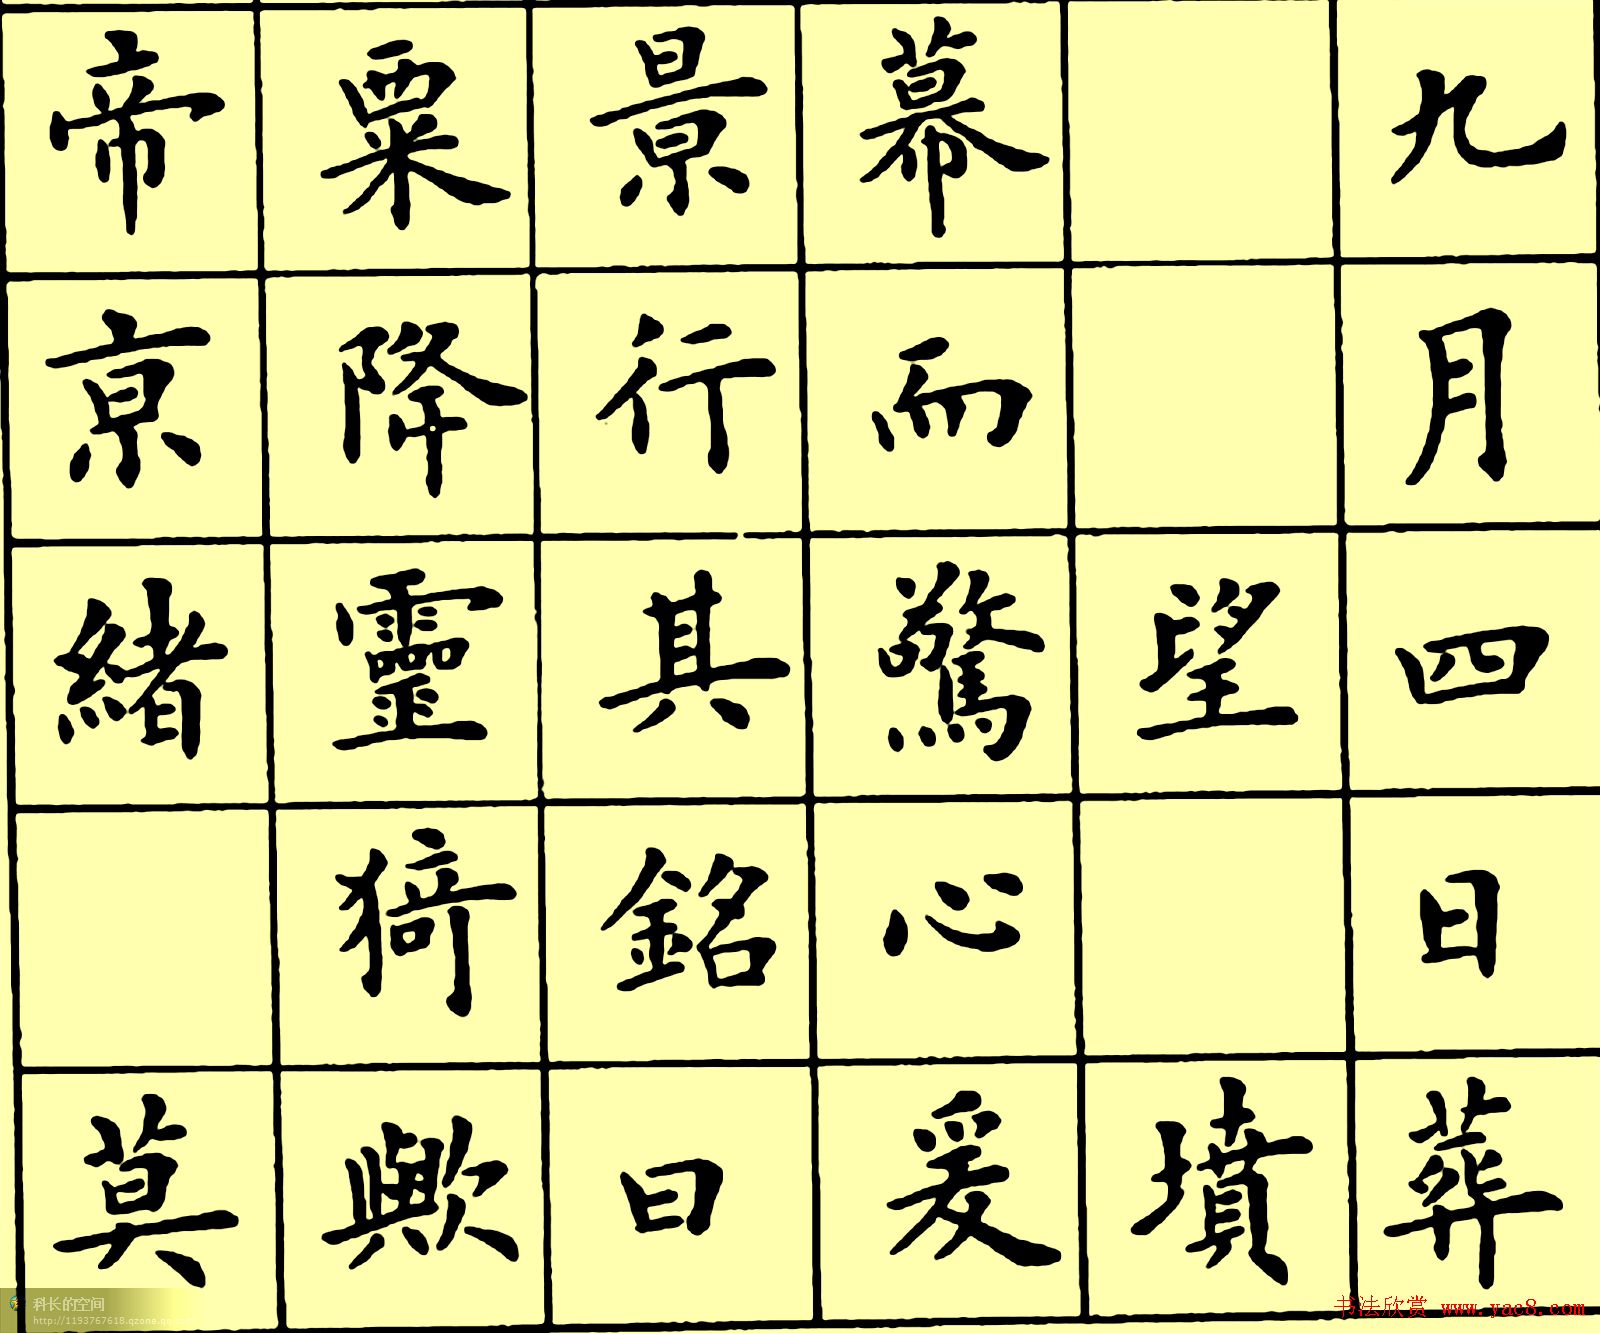 九月四日葬
望 墳
幕而驚心爰
景行其銘曰
粟降靈猗歟
帝亰緒 莫
科长的空间
http://1193767618.qzone.qq.
书法欣赏 www.yac8.com